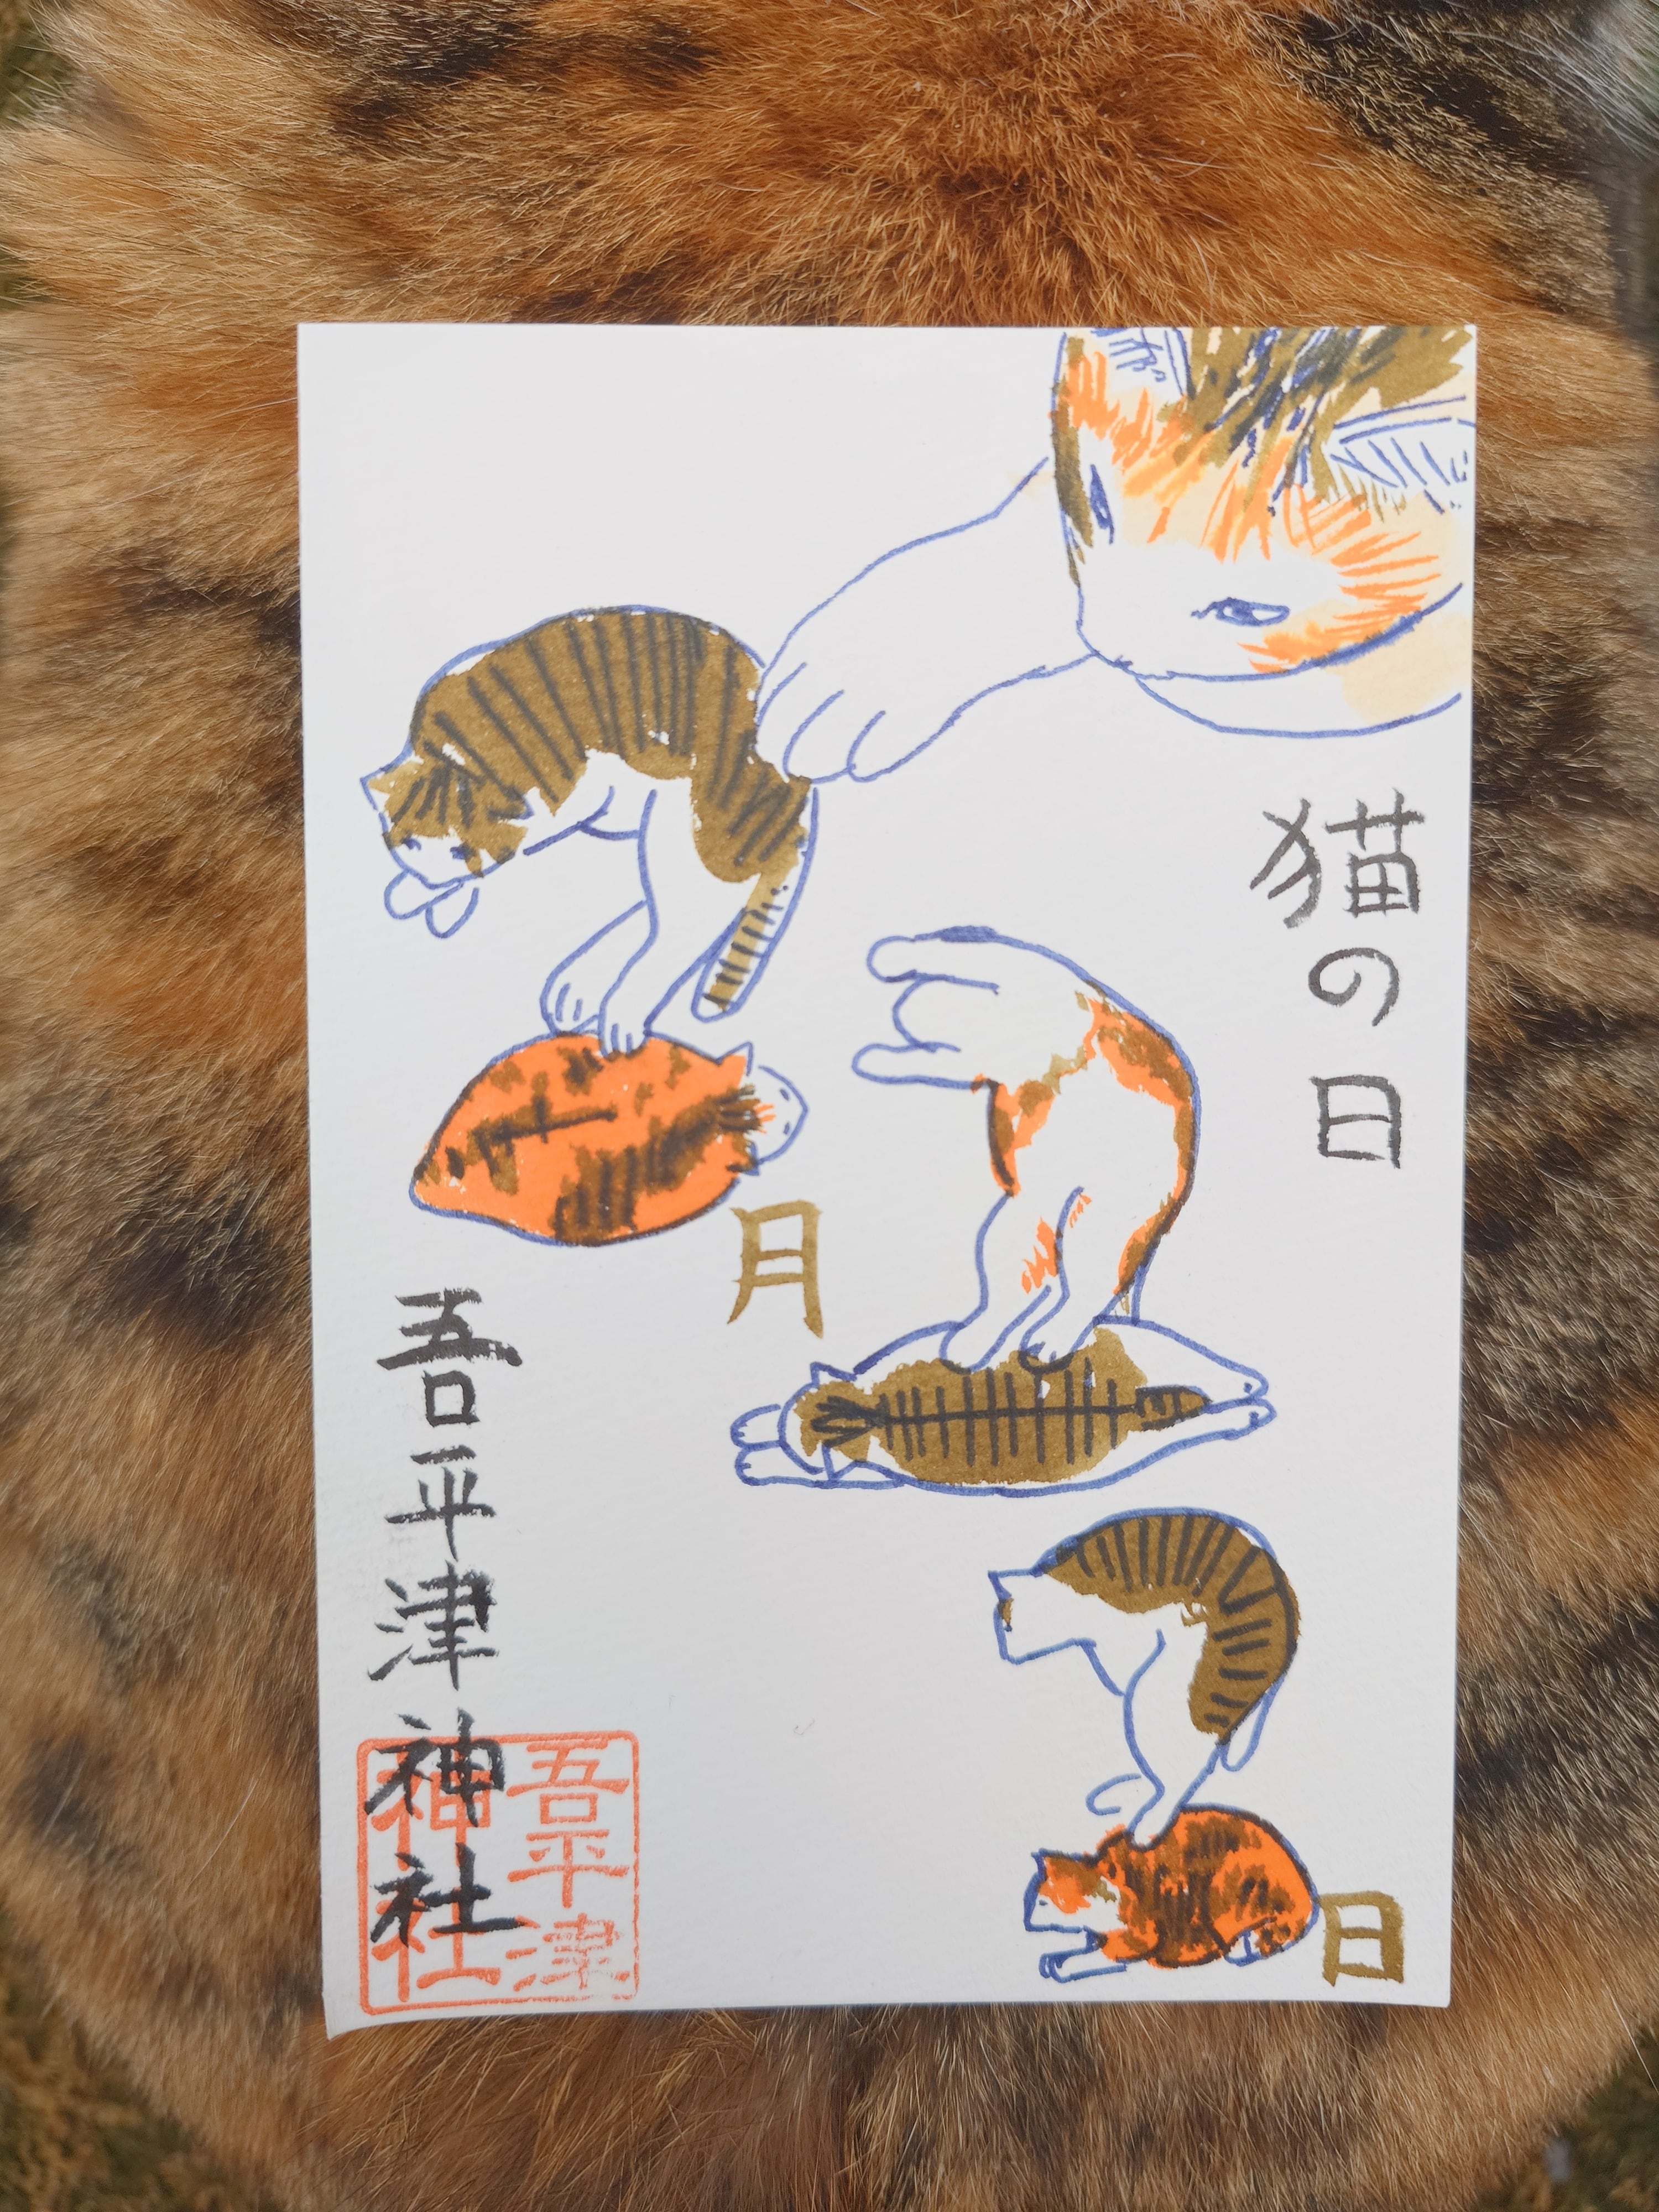 猫の日
月
日
吾平津神社
吾平津
神社